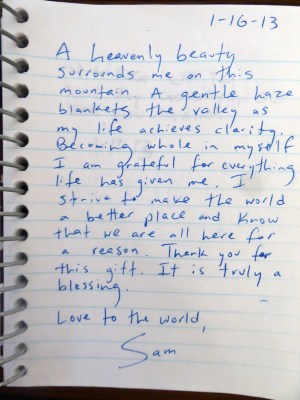 1-16-13
A heavenly beauty
surrounds me on this
mountain. A gentle haze
blankets the valley as
my life achieves clarity.
Becoming whole in myself
I am grateful for everything
life has given me. I
strive to make the world
a better place and know
that we are all here for
a reason. Thank you for
this gift. It is truly a
blessing.
Love to the world,
Sam